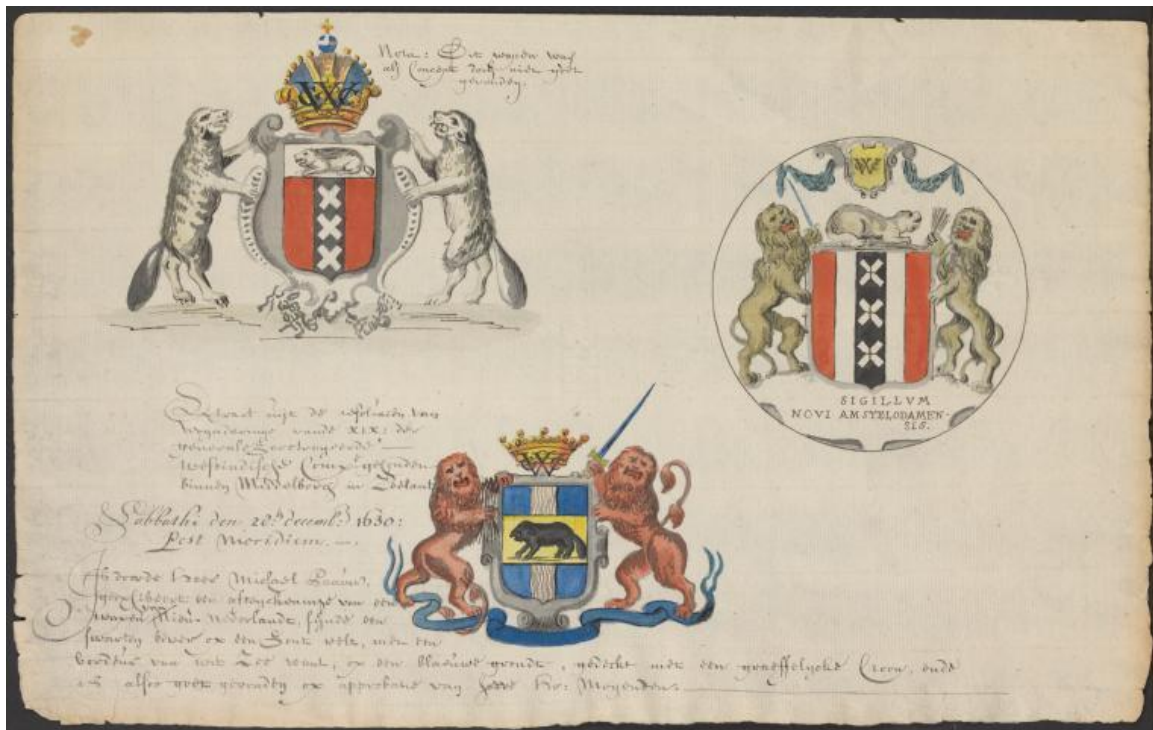 Nota: Dit wapen was
als Concept doch niet goet
gevonden.
W
SIGILLVM
NOVI AMSTELODAMEN-
SIS.
Extract uijt de resolutien van
vergaderinge vande XIX: der
generale Geoctroyeerde
Westindische Comp: gehouden
binnen Middelborch in Zeelant
Sabbathi den 28: decemb: 1630:
Post Meridiem.
Is door de Heer Michael Pauw,
van een
wapen van Nieu Nederlandt, sijnde een
swarten bever op een gout velt, met een
bordeur van wit Zee want, op een blaeuwe grondt, gedeckt met een graeffelycke Croon, ende
is alsoo goet gevonden op approbatie van Hare Ho: Mogenden.